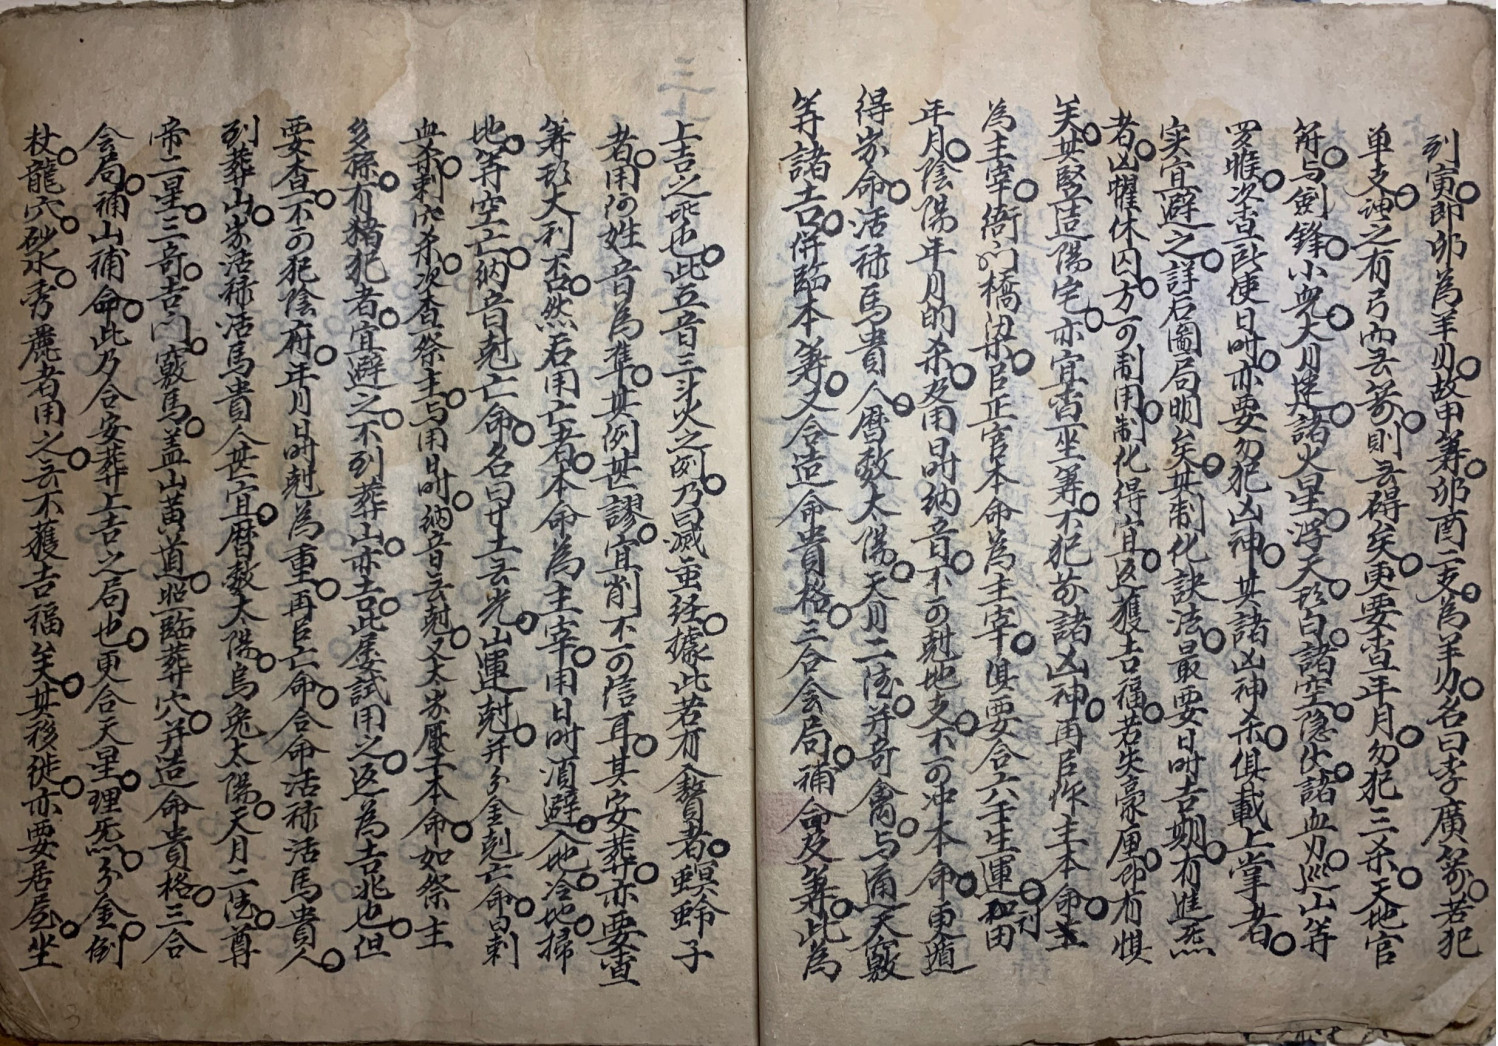 到寅即卯為羊刃故甲筭卯酉二支為羊刃名曰李廣箭若犯
单支謂之有弓而無箭則無碍矣更要查年月勿犯三杀天地官
符与劍鋒小兒大月建諸火星浮天打白諸空隱伏諸血刃巡山等
罗睺次查所使日时亦要勿犯凶神其諸凶神杀俱載上掌者
实宜避之詳石圖局明矣其制化訣法最要日时吉期有進炁
者凶懼休囚方可制用制化得宜返獲吉福若失毫厘即有惧
矣其竪造陽宅亦宜查坐筭不犯於諸凶神再后作主本命
為主宰衙门橋梁后正官本命為主宰俱要合六壬生運和田刊
年月陰陽年月的杀及用日时納音不可尅地支不可冲本命更遁
得岁命活禄馬貴人暦数太陽天月二德并奇禽与通天竅
筭諸吉併臨本筭又合造命貴格三合会局補命及筭此為
上吉之地也此五音三斗火之例乃曰滅蛮経據此若有贅者螟蛉子
者用何姓音為準其例甚謬宜削不可信耳其安葬亦要查
筭打大利否然石用亡者本命為主宰用日时須避入地冷地掃
地等空亡納音尅亡命名曰廿土無光山運尅并分金尅亡命曰剌
血杀剌穴杀次查祭主与用日时納音無尅又太岁厭本命如祭主
多孫有犯者宜避之不到葬山亦吉此屡試用之返為吉兆也但
要查不可犯陰府年月日时尅為重再后亡命合命活禄活馬貴人
到葬山岁活禄活馬貴人甚宜暦数太陽烏兔太陽天月二德尊
帝二星三奇吉门竅馬盖山黄道照臨葬穴并造命貴格三合
会局補山補命此乃合安葬上吉之局也更合天星理炁分金倒
杖龍穴砂水秀麗者用之無不獲吉福矣其移徙亦要居屋坐